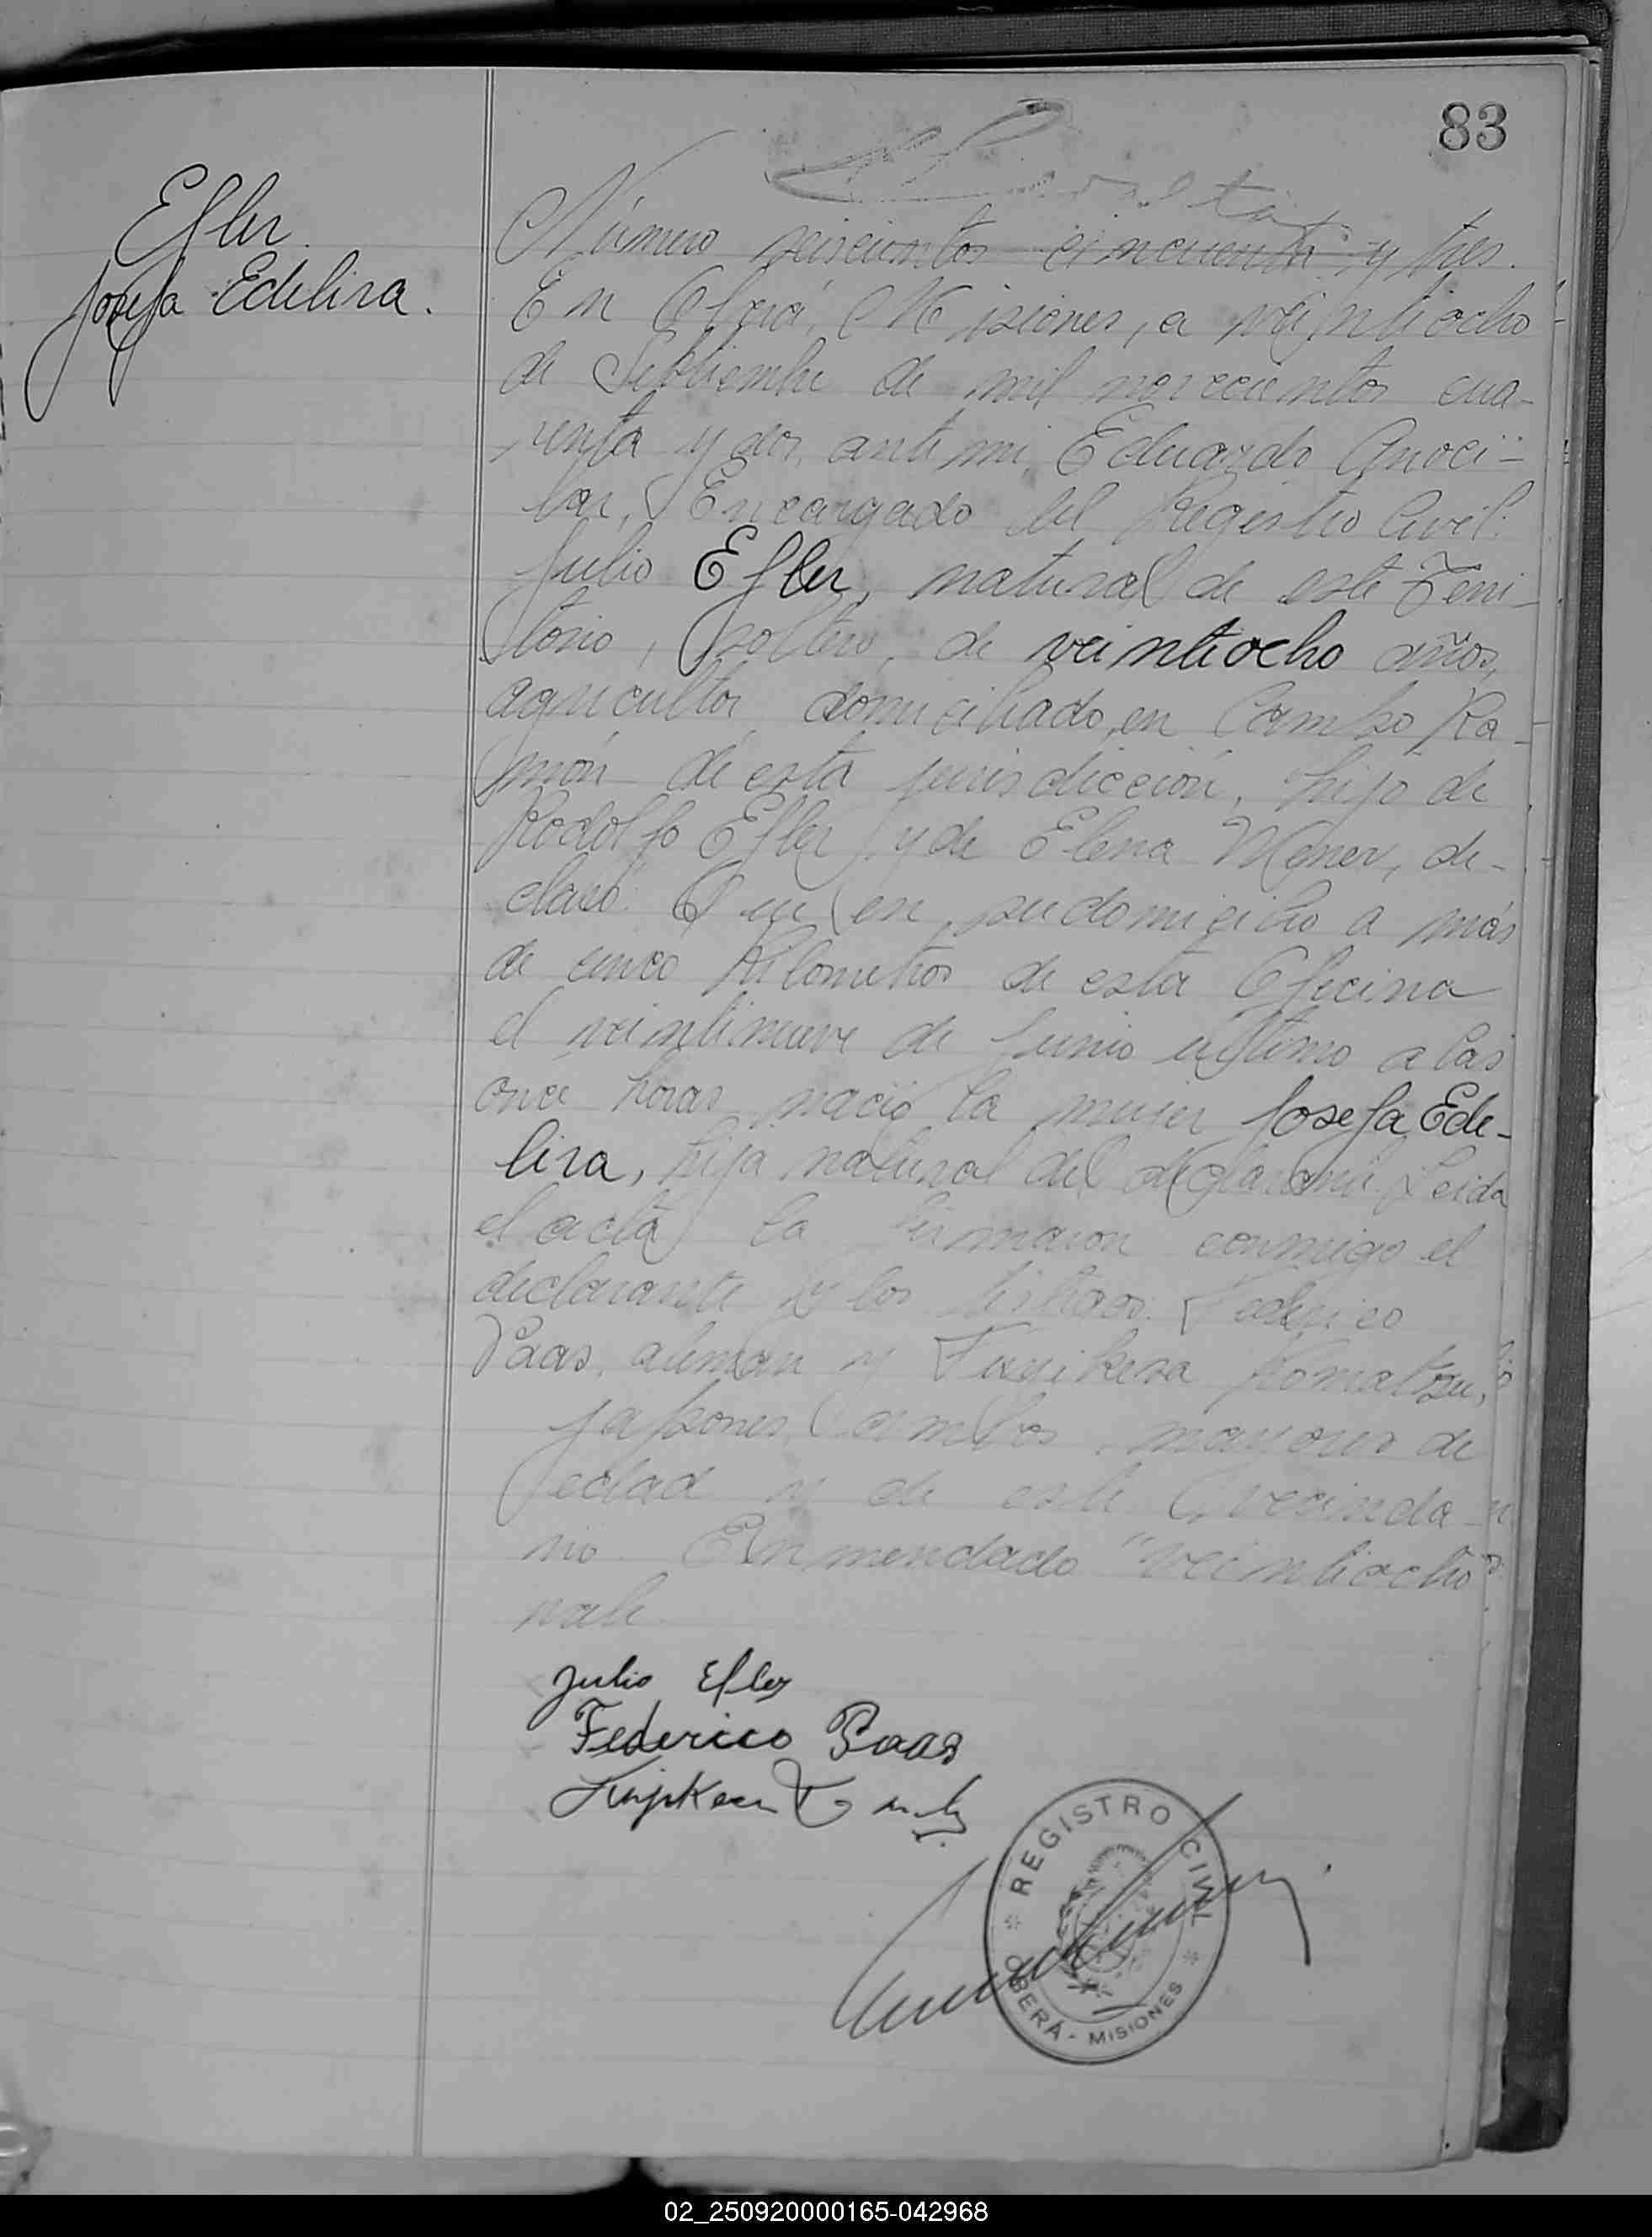 83
Efler
Josefa Edelira.
Número seiscientos cincuenta y tres.
En Oberá, Misiones, a veintiocho
de Septiembre de mil novecientos cua-
renta y dos, ante mi, Eduardo
Encargado del Registro Civil:
Julio Efler, natural de este Terri-
torio, soltero, de veintiocho años,
agricultor, domiciliado en Campo Ra-
món de esta jurisdicción, hijo de
Rodolfo Efler y de Elena de-
claró: Que en su domicilio a más
de cinco kilometros de esta Oficina
el veintinueve de Junio último a las
once horas nació la mujer Josefa Ede-
lira, hija natural del declarante. Leida
el acta la firmaron conmigo el
declarante y los testigos: Federico
Paas, alemán y Komatsu,
japones, ambos mayores de
edad y de este vecinda-
rio. Enmendado "veintiocho"
vale.
Julio Efler
Federico Paas
REGISTRO CIVIL
OBERÁ - MISIONES
02_250920000165-042968